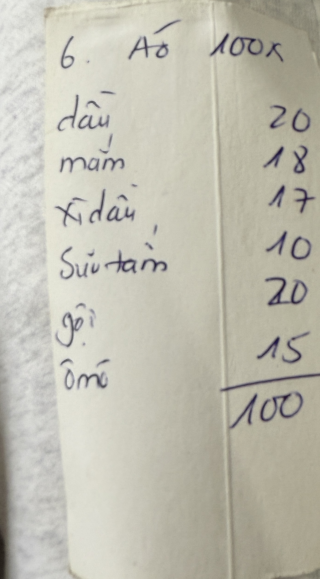 6. Áo 100k
dầu 20
mắm 18
xì dầu 17
Sữa tắm 10
gội 20
ômô 15
100